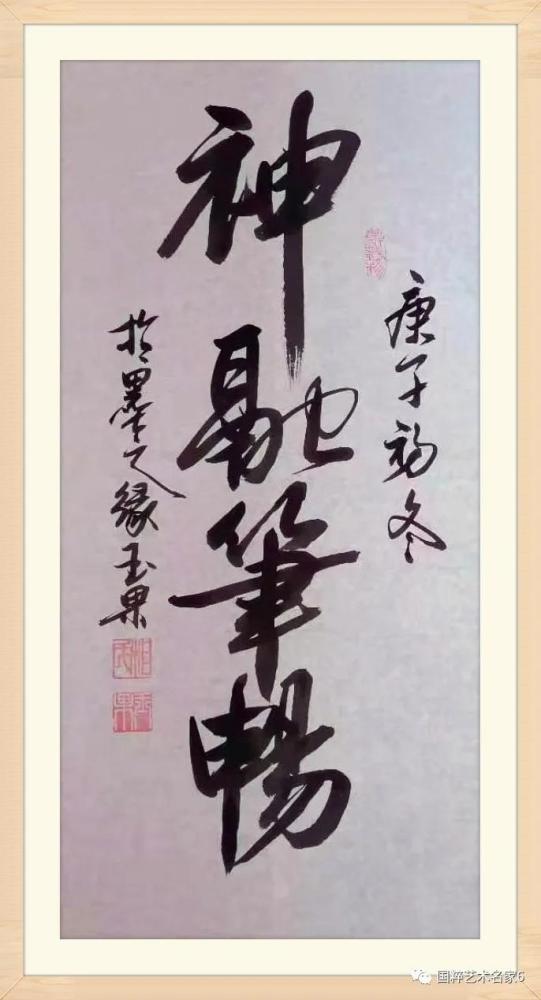 庚子初冬
神融筆暢
於墨之緣玉果
国粹艺术名家6